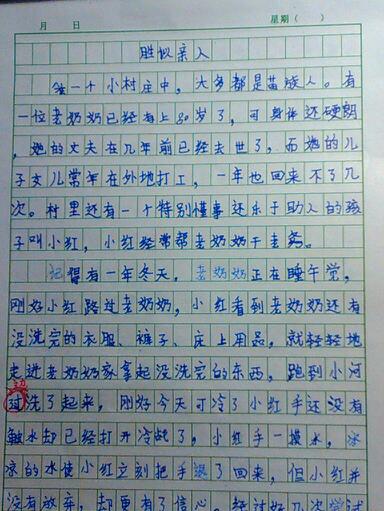 月 日 星期（ ）
胜似亲人
在一个小村庄中，大多都是苗族人。有
一位老奶奶已经有上80岁了，可身体还硬朗
，她的丈夫在几年前已经去世了，而她的儿
子女儿常年在外地打工，一年也回来不了几
次。村里还有一个特别懂事还乐于助人的孩
子叫小红，小红经常帮老奶奶干老务。
记得有一年冬天，老奶奶正在睡午觉，
刚好小红路过老奶奶，小红看到老奶奶还有
没洗完的衣服、裤子、床上用品，就轻轻地
走进老奶奶家拿起没洗完的东西，跑到小河
边
洗了起来，刚好今天可冷了小红手还没有
触水却已经打开冷战了，小红手一摸水，冰
凉的水使小红立刻把手缩了回来，但小红并
没有放弃，却更有了信心。经过好几次尝试